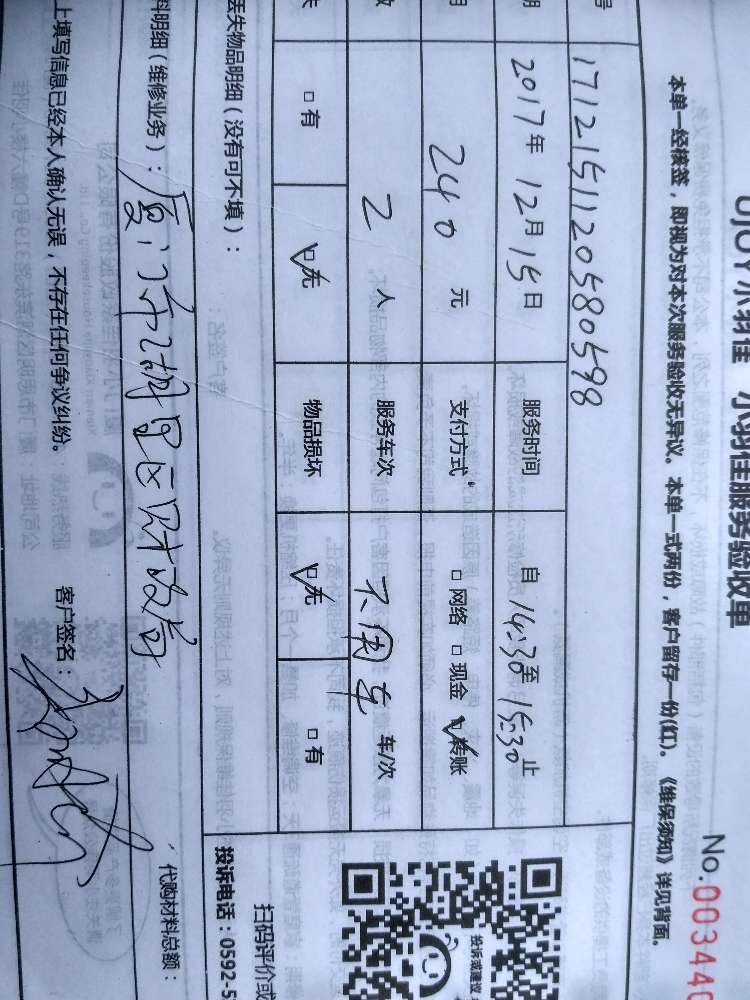 UJOY小羽佳 小羽佳服务验收单
No.003440
本单一经核签，即视为对本次服务验收无异议。本单一式两份，客户留存一份(红)。《维保须知》详见背面。
号 1712151120580598
期 2017年12月15日 服务时间 自14:30至15:30止
用 240 元 支付方式 □网络 □现金 ☑转账
数 2 人 服务车次 不用车 车/次
失 □有 ☑无 物品损坏 ☑无 □有
丢失物品明细（没有可不填）：
料明细（维修业务）：厦门市湖里区财政局
代购材料总额：
上填写信息已经本人确认无误，不存在任何争议纠纷。
客户签名：
投诉或建议
扫码评价或
投诉电话：0592-5